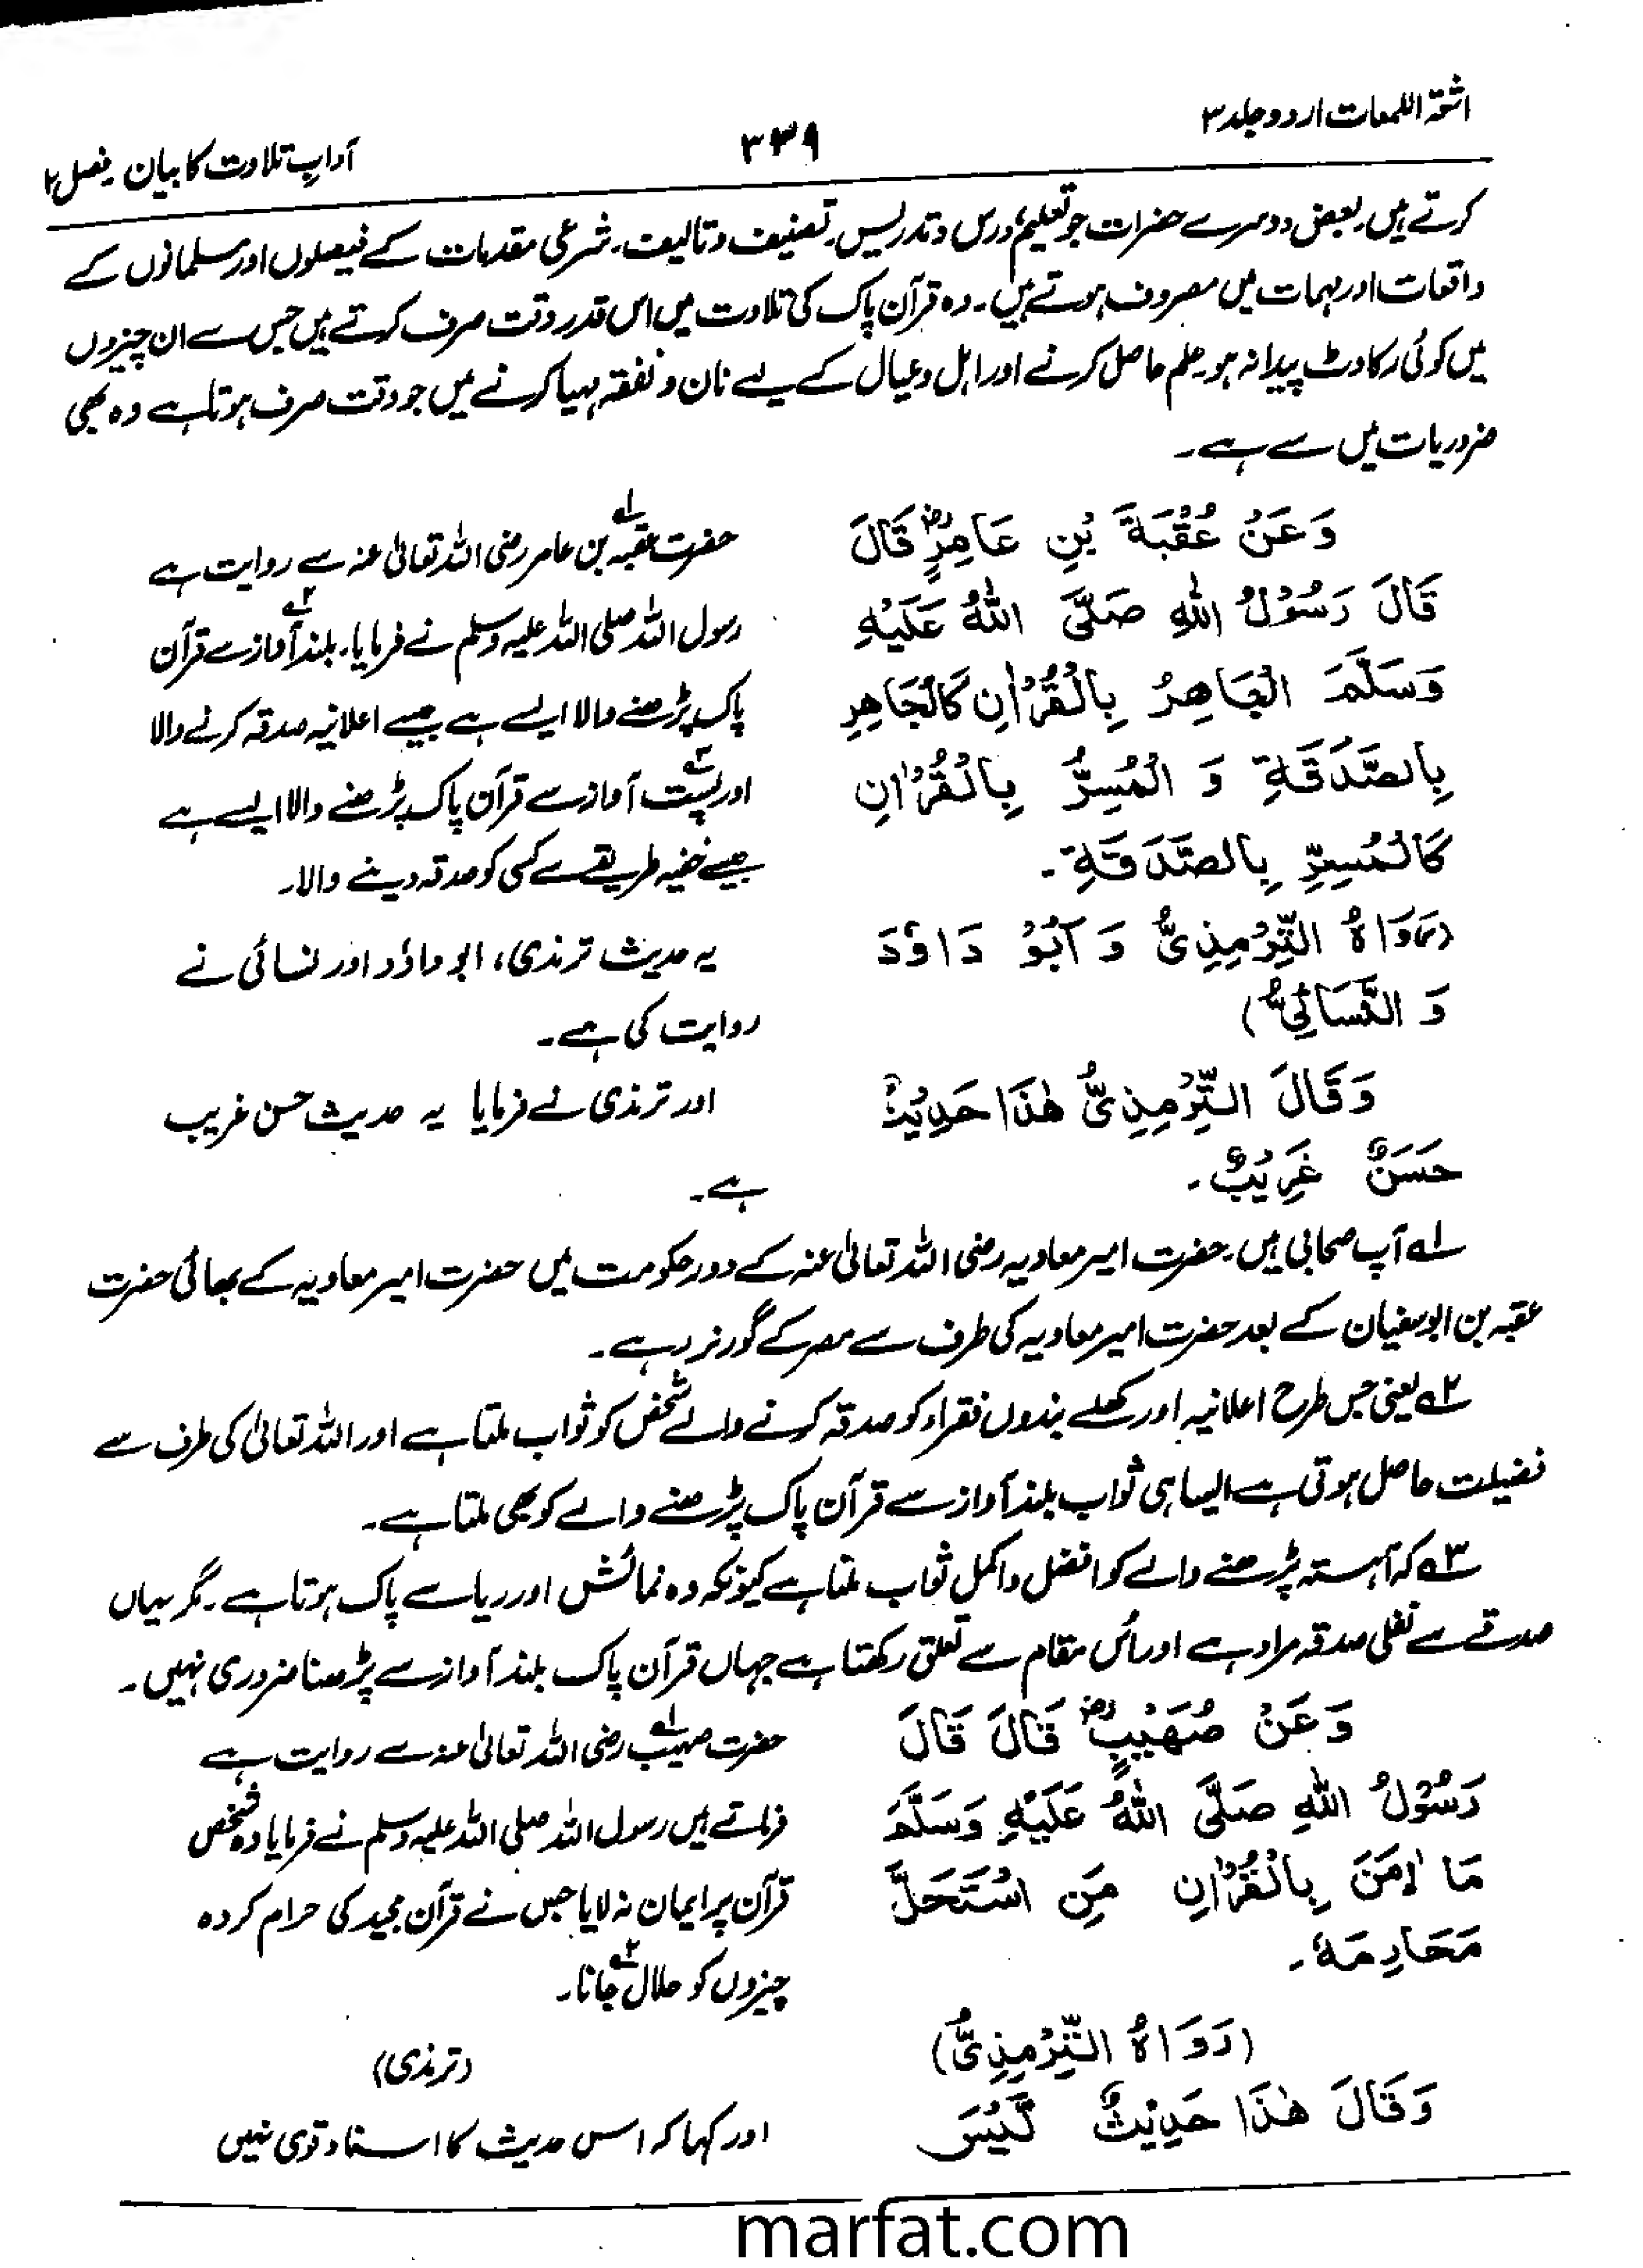 اشعۃ اللمعات اردو جلد ۳
۳۳۹
آدابِ تلاوت کا بیان۔ فصل ۲
کرتے ہیں۔ بعض دوسرے حضرات جو تعلیم، درس و تدریس، تصنیف و تالیف، شرعی مقدمات کے فیصلوں اور مسلمانوں کے
واقعات اور مہمات میں مصروف ہوتے ہیں۔ وہ قرآن پاک کی تلاوت میں اس قدر وقت صرف کرتے ہیں جس سے ان چیزوں
میں کوئی رکاوٹ پیدا نہ ہو علم حاصل کرنے اور اہل و عیال کے لیے نان و نفقہ مہیا کرنے میں جو وقت صرف ہوتا ہے وہ بھی
ضروریات میں سے ہے۔
وَعَنْ عُقْبَةَ بْنِ عَامِرٍ ؓ قَالَ
قَالَ رَسُوْلُ اللهِ صَلَّى اللهُ عَلَيْهِ
وَسَلَّمَ الْجَاهِرُ بِالْقُرْاٰنِ كَالْجَاهِرِ
بِالصَّدَقَةِ وَ الْمُسِرُّ بِالْقُرْاٰنِ
كَالْمُسِرِّ بِالصَّدَقَةِ۔
(رَوَاهُ التِّرْمِذِىُّ وَ اَبُوْ دَاوٗدَ
وَ النَّسَائِىُّ)
وَقَالَ التِّرْمِذِىُّ هٰذَا حَدِيْثٌ
حَسَنٌ غَرِيْبٌ۔
حضرت عقبہ ۱؎ بن عامر رضی اللہ تعالیٰ عنہ سے روایت ہے
رسول اللہ صلی اللہ علیہ وسلم نے فرمایا، بلند ۲؎ آواز سے قرآن
پاک پڑھنے والا ایسے ہے جیسے اعلانیہ صدقہ کرنے والا
اور پست ۳؎ آواز سے قرآن پاک پڑھنے والا ایسے ہے
جیسے خفیہ طریقے سے کسی کو صدقہ دینے والا۔
یہ حدیث ترمذی، ابو داؤد اور نسائی نے
روایت کی ہے۔
اور ترمذی نے فرمایا یہ حدیث حسن غریب
ہے۔
۱؎ آپ صحابی ہیں۔ حضرت امیر معاویہ رضی اللہ تعالیٰ عنہ کے دور حکومت میں حضرت امیر معاویہ کے بھائی حضرت
عقبہ بن ابوسفیان کے بعد حضرت امیر معاویہ کی طرف سے مصر کے گورنر رہے۔
۲؎ یعنی جس طرح اعلانیہ اور کھلے بندوں فقراء کو صدقہ کرنے والے شخص کو ثواب ملتا ہے اور اللہ تعالیٰ کی طرف سے
فضیلت حاصل ہوتی ہے ایسا ہی ثواب بلند آواز سے قرآن پاک پڑھنے والے کو بھی ملتا ہے۔
۳؎ کہ آہستہ پڑھنے والے کو افضل و اکمل ثواب ملتا ہے کیونکہ وہ نمائش اور ریا سے پاک ہوتا ہے۔ مگر یہاں
صدقے سے نفلی صدقہ مراد ہے اور اُس مقام سے تعلق رکھتا ہے جہاں قرآن پاک بلند آواز سے پڑھنا ضروری نہیں۔
وَعَنْ صُهَيْبٍ ؓ قَالَ قَالَ
رَسُوْلُ اللهِ صَلَّى اللهُ عَلَيْهِ وَسَلَّمَ
مَا اٰمَنَ بِالْقُرْاٰنِ مَنِ اسْتَحَلَّ
مَحَارِمَهٗ۔
(رَوَاهُ التِّرْمِذِىُّ)
وَقَالَ هٰذَا حَدِيْثٌ لَيْسَ
حضرت صہیب ۱؎ رضی اللہ تعالیٰ عنہ سے روایت ہے
فرماتے ہیں رسول اللہ صلی اللہ علیہ وسلم نے فرمایا وہ شخص
قرآن پر ایمان نہ لایا جس نے قرآن مجید کی حرام کردہ
چیزوں کو حلال ۲؎ جانا۔
(ترمذی)
اور کہا کہ اس حدیث کا اسناد قوی نہیں
marfat.com